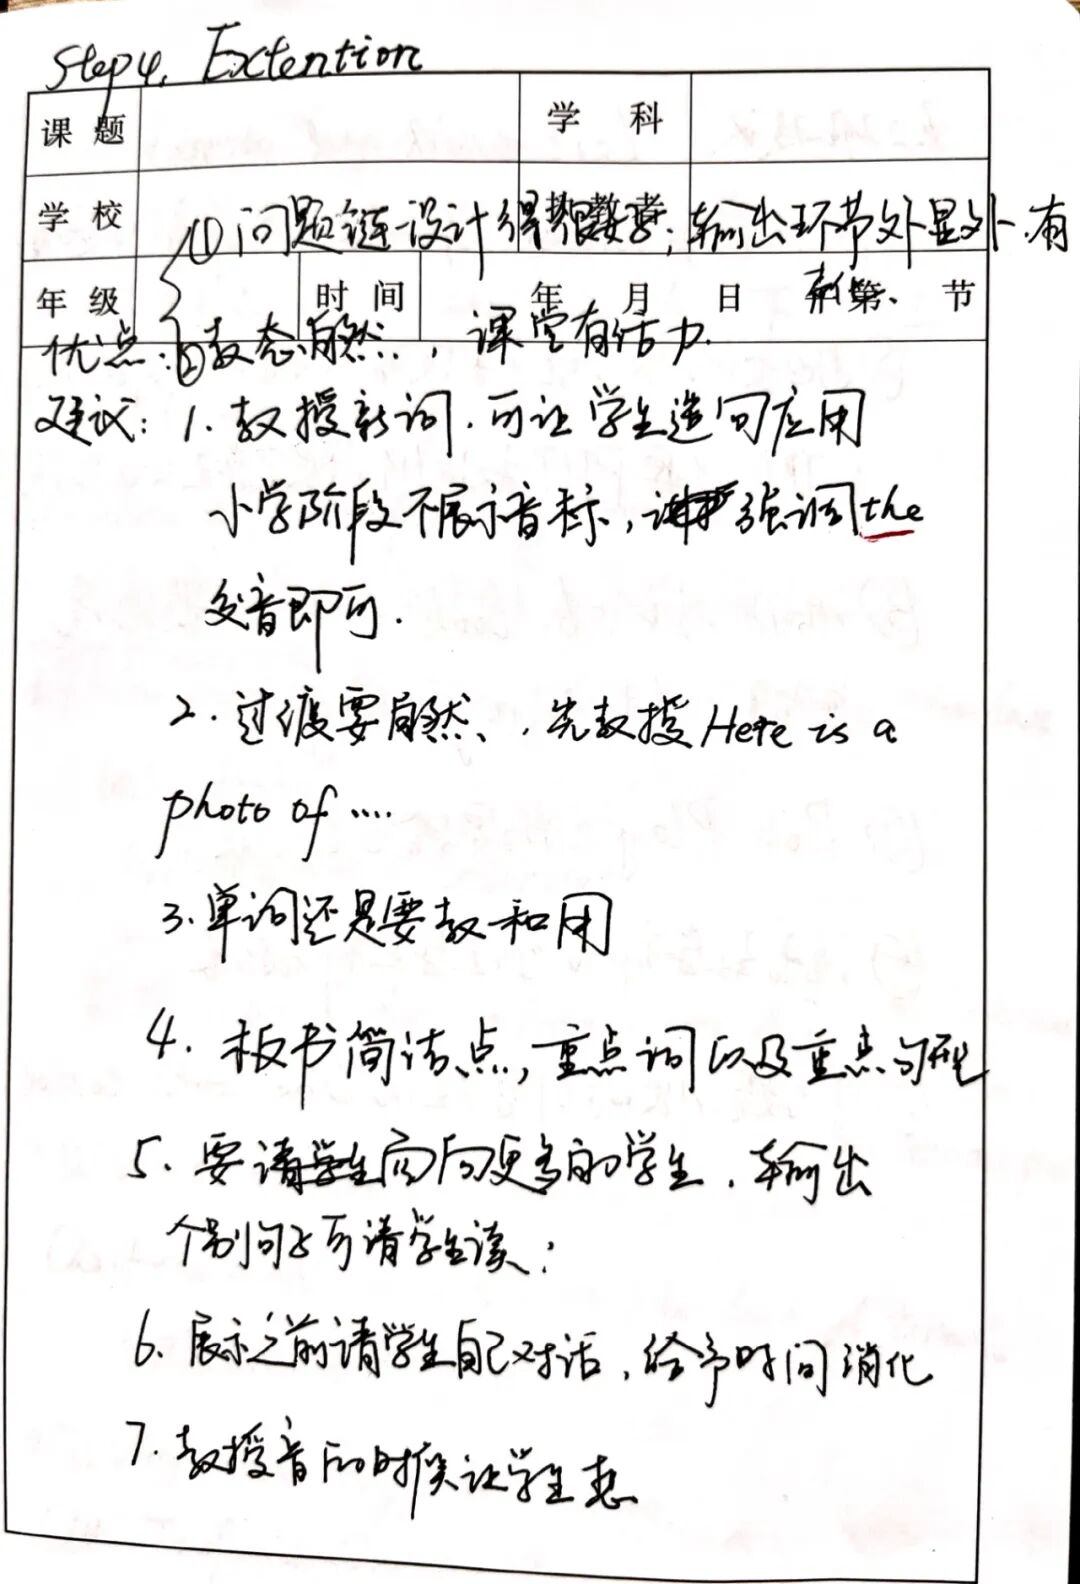 Step4. Extention
课 题 学 科
学 校 ①问题链设计得很数学; 输出环节外显外.有
年 级 时 间 年 月 日 第 节
优点:②教态自然, 课堂有活力.
建议: 1. 教授新词. 可让学生造句应用
小学阶段不展示音标, 强调the
发音即可.
2. 过渡要自然, 先教授 Here is a
photo of ....
3. 单词还是要教和用
4. 板书简洁点, 重点词以及重点句型
5. 要请学生面向更多的学生. 输出
个别句子可请学生读;
6. 展示之前请学生自己对话, 给予时间消化
7. 教授音的时候让学生